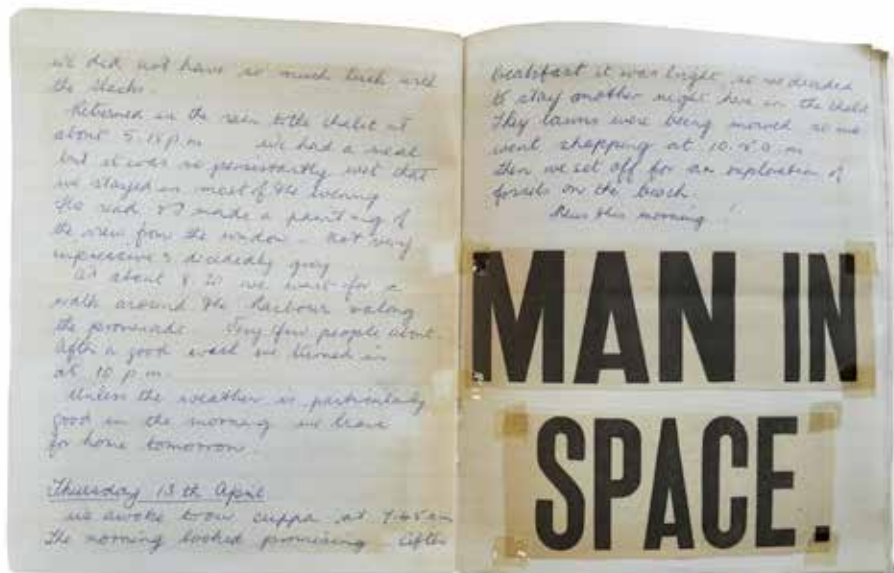 we did not have so much luck with
the slacks.
Returned in the rain to the chalet at
about 5.15 p.m we had a meal
but it was so persistantly wet that
we stayed in most of the evening
read & I made a painting of
the view from the window – not very
impressive & decidedly grey
At about 8 20 we went for a
walk around the Harbour & along
the promenade Very few people about.
After a good walk we turned in
at 10 p.m.
Unless the weather is particularly
good in the morning we leave
for home tomorrow.
Thursday 13th April
we awoke to our cuppa at 7.45 am
The morning looked promising After
breakfast it was bright, so we decided
to stay another night here in the chalet
They lawns were being mowed so we
went shopping at 10.50 m
then we set off for an exploration of
fossils on the beach.
News this morning !
MAN IN
SPACE.